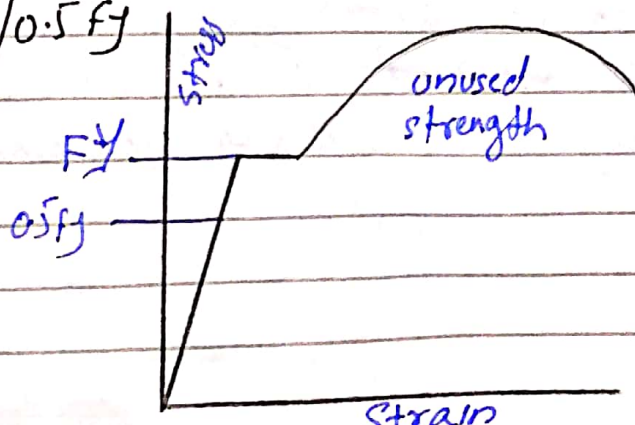 /0.5 fy
Stress
unused
strength
Fy
05fy
Strain